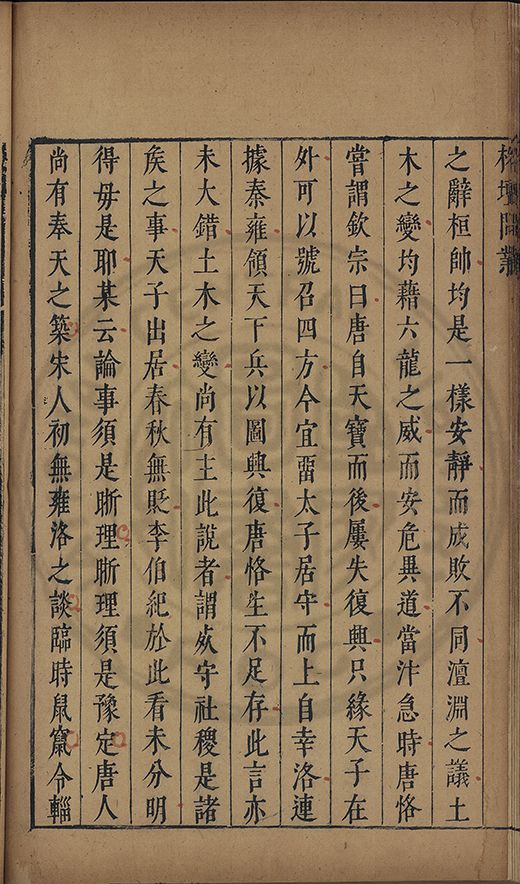 榕壇問業
之辭桓帥均是一樣安靜而成敗不同澶淵之議土
木之變均藉六龍之威而安危異道當汴急時唐恪
嘗謂欽宗曰唐自天寶而後屢失復興只緣天子在
外可以號召四方今宜畱太子居守而上自幸洛連
據秦雍領天下兵以圖興復唐恪生不足存此言亦
未大錯土木之變尚有主此說者謂效守社稷是諸
矦之事天子出居春秋無貶李伯紀於此看未分明
得毋是耶某云論事須是晣理晣理須是豫定唐人
尚有奉天之築宋人初無雍洛之談臨時鼠竄令輜